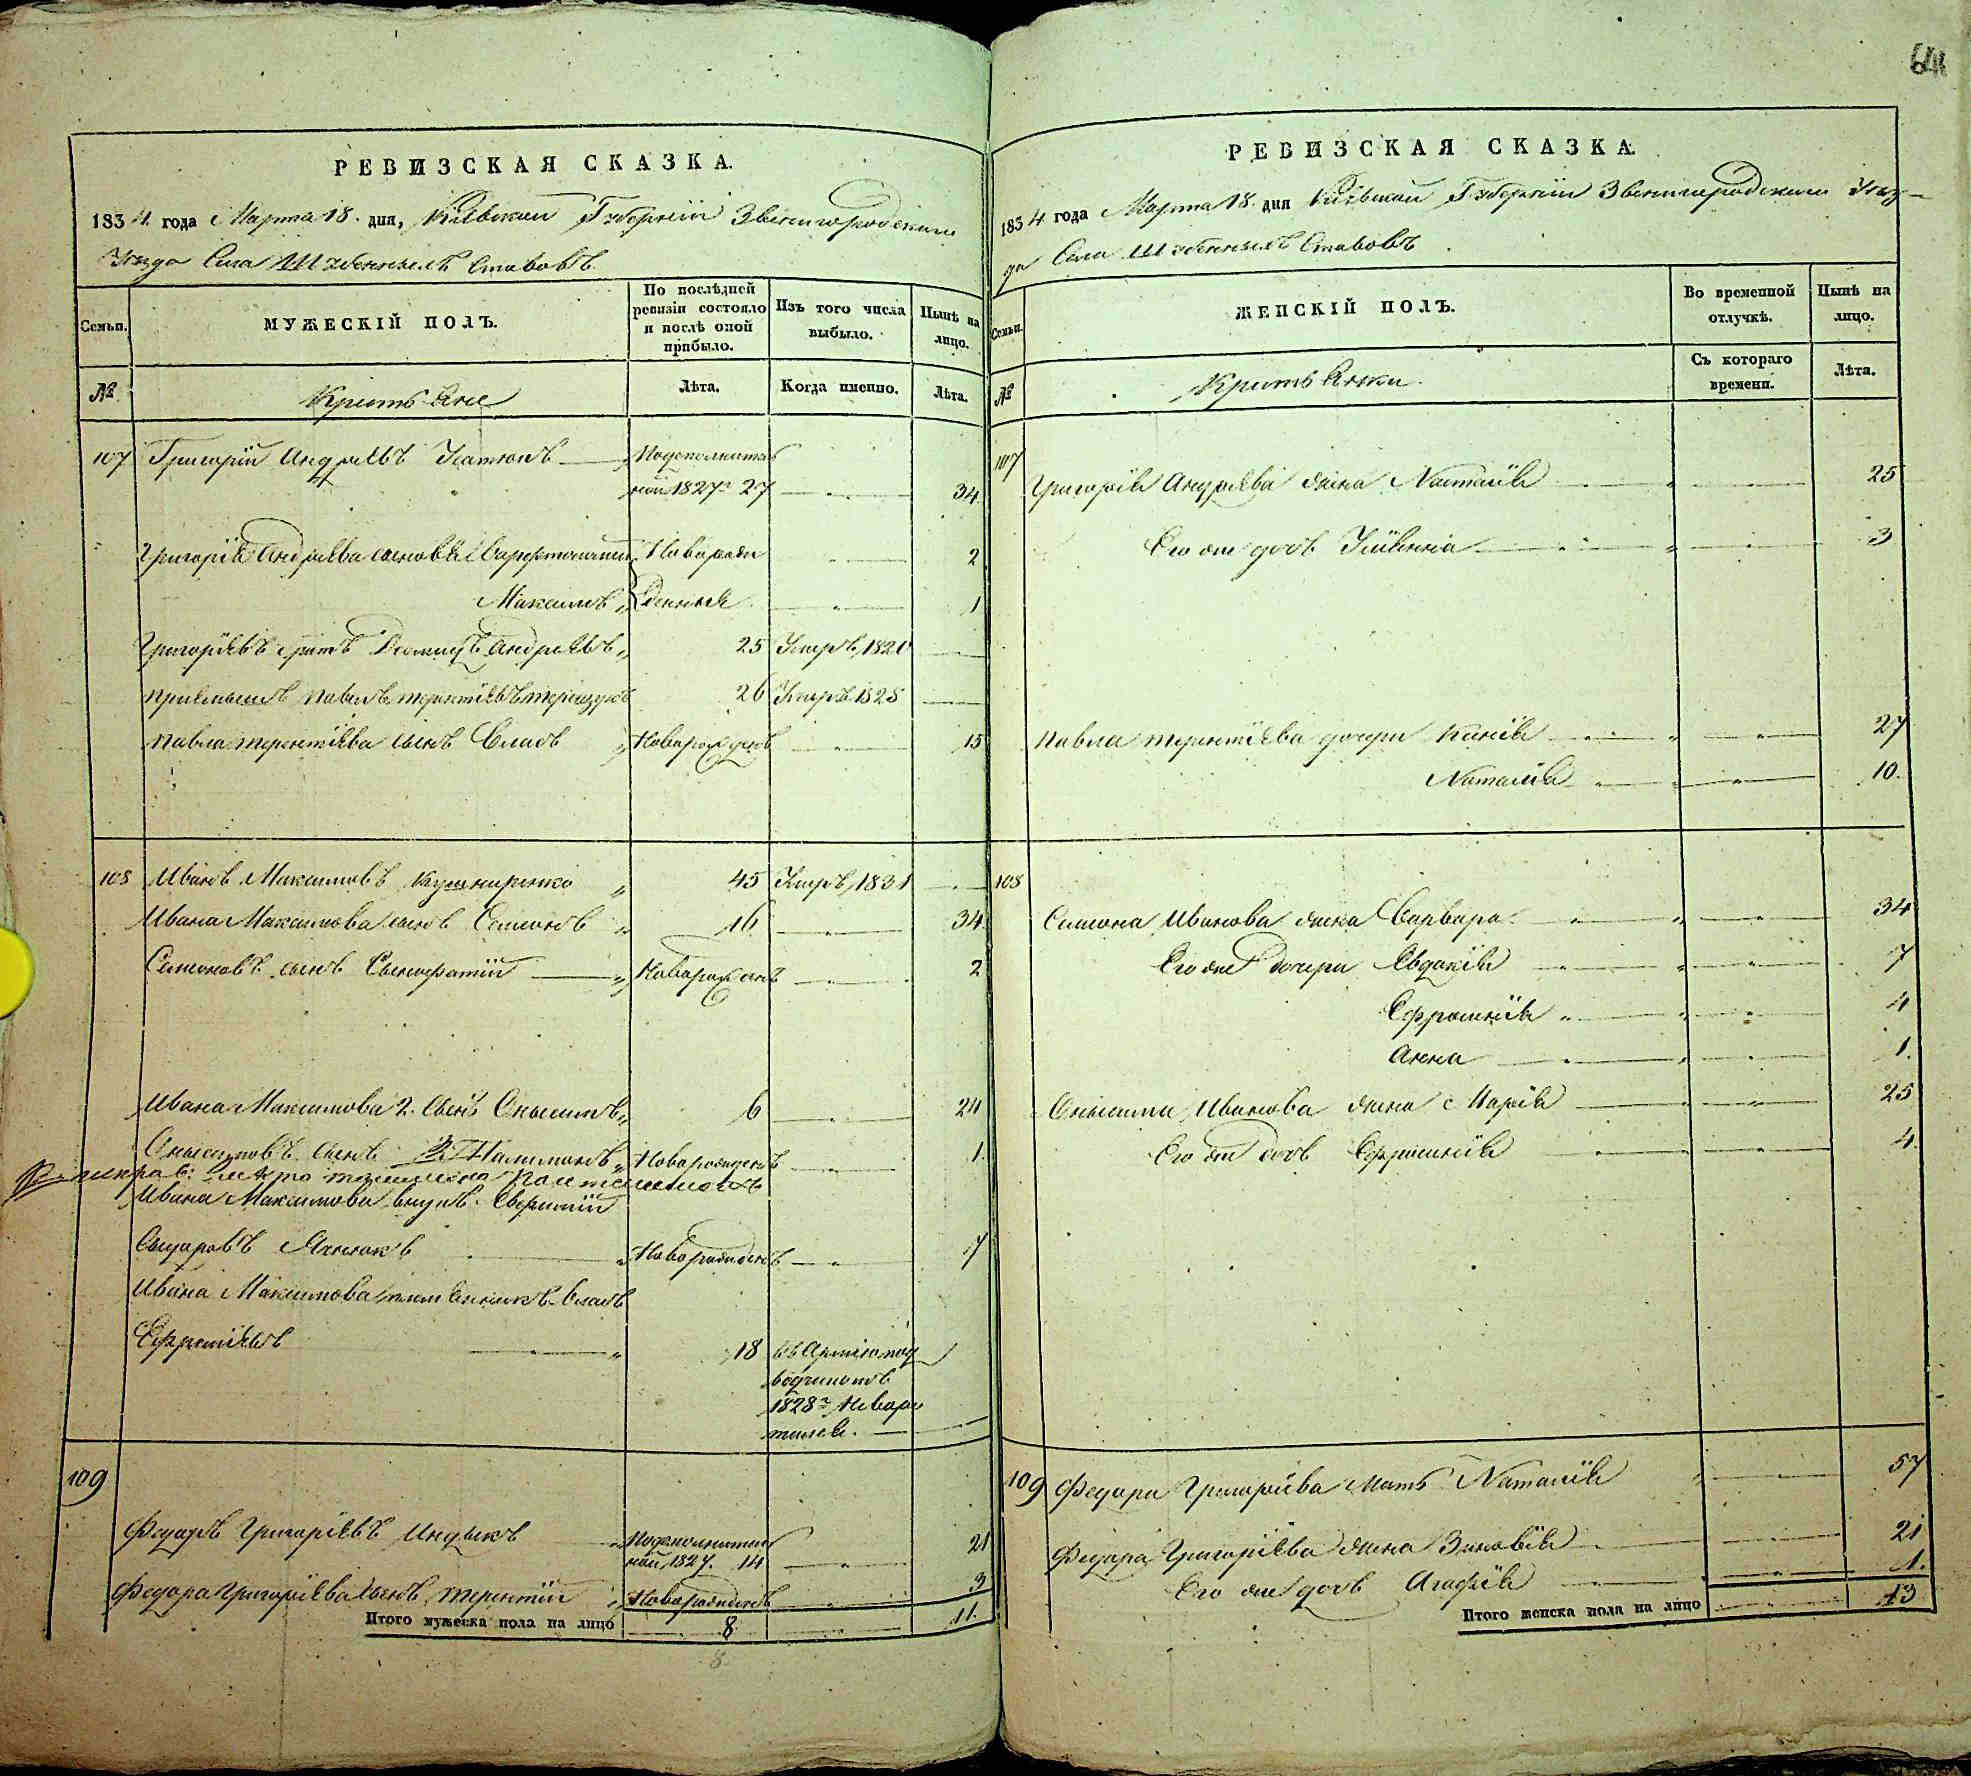 641
РЕВИЗСКАЯ СКАЗКА.
1834 года Марта 18. дня, Кіевской Губерніи Звенигородскаго
Уезда Села Шубенныхъ Ставовъ.
Семьи.
МУЖЕСКІЙ ПОЛЪ.
По послѣдней ревизіи состояло и послѣ оной прибыло.
Изъ того числа выбыло.
Нынѣ на лицо.
№
Крестьяне
Лѣта.
Когда именно.
Лѣта.
107 Григорій Андреевъ
По дополнитель
ной 1827г 27 34
Григорія Андреева сыновья Варфоломей Новорож 2
Максимъ денныя 1
Григоріевъ братъ Андреевъ 25 Умеръ 1820
Приемышъ Павелъ Терентіевъ 26 Умеръ 1825
Павла Терентіева сынъ Власъ Новорожденъ 15
108 Иванъ Максимовъ Кушниренко 45 Умеръ 1831
Ивана Максимова сынъ Семенъ 16 34
Семеновъ сынъ Новорожденъ 2
Ивана Максимова 2. сынъ Онисимъ 6 24
Онисимовъ сынъ Новорожденъ 1
Ивана Максимова внукъ
Новорожденъ 7
Ивана Максимова племянникъ Власъ
18 въ Армію под
водчикомъ
1828г Невоз
109
Федоръ Григоріевъ Индыкъ По дополнитель
ной 1827. 14 21
Федора Григоріева сынъ Терентій Новорожденъ 3
Итого мужеска пола на лицо 8 11.
8.
РЕВИЗСКАЯ СКАЗКА.
1834 года Марта 18. дня Кіевской Губерніи Звенигородскаго Уез-
да Села Шубенныхъ Ставовъ.
Семьи.
ЖЕНСКІЙ ПОЛЪ.
Во временной отлучкѣ.
Нынѣ на лицо.
№
Крестьянки.
Съ котораго времени.
Лѣта.
107
Григорія Андреева жена 25
Его же дочь 3
Павла Терентіева дочери 27
Наталія 10.
108
Семена Иванова жена Варвара 34
Его же дочери Евдокія 7
Ефросинія 4
Анна 1.
Онисима Иванова жена Марія 25
Его же дочь Ефросинія 4
109 Федора Григоріева мать Наталія 57
Федора Григоріева жена Зиновія 21
Его же дочь Агафія 1.
Итого женска пола на лицо 13